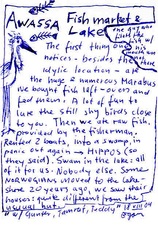 AWASSA Fish market &
Lake
The first thing one
notices - besides the
idylic location - are
the huge & numerous Marabus
We bought fish left-overs and
fed them. A lot of fun to
lure the still shy birds close
to you. Then we ate raw fish,
provided by the fisherman.
Rented 2 boats, into a swamp, in
panic out again → HIPPOS (as
they said). Swam in the lake: all
of it for us. Nobody else. Some
Norwegians moved to the lake
shore 20 years ago, we saw their
houses: quite different from the
usual hut.
w/ Gunter, Tamrat, Teddy